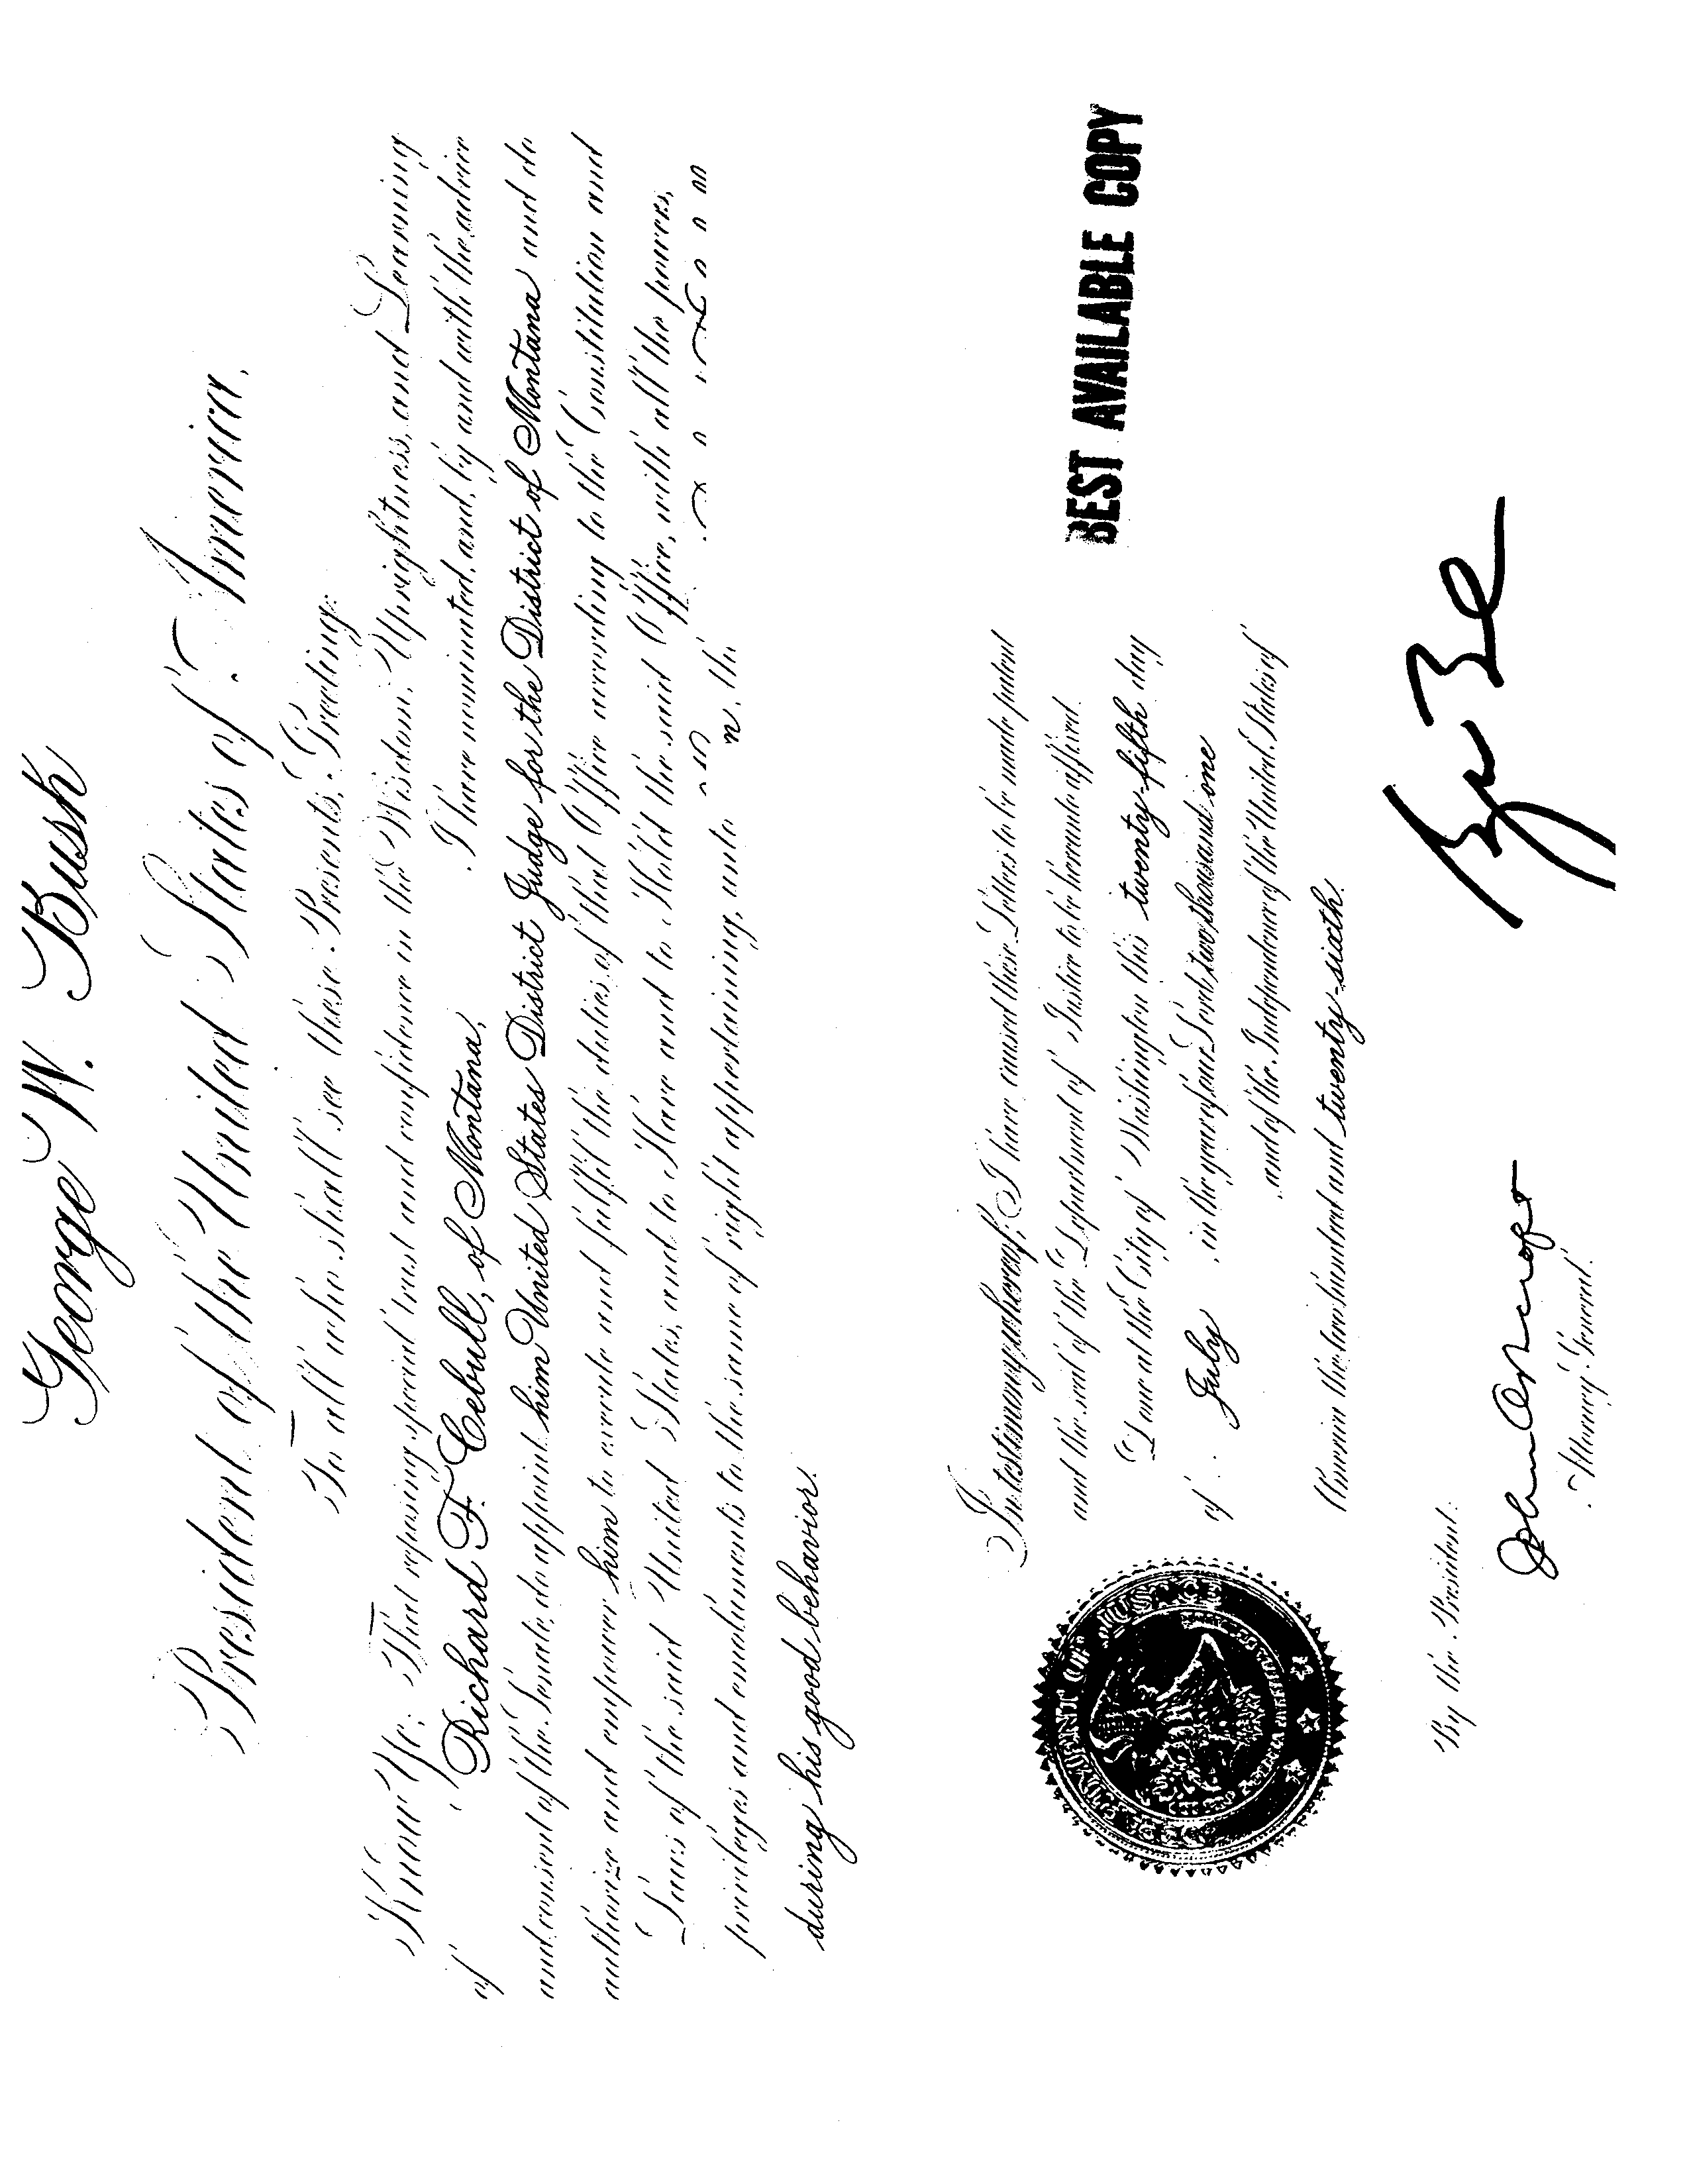 George W. Bush
President of the United States of America.
To all who shall see these Presents, Greeting:
Know Ye; That reposing special trust and confidence in the Wisdom, Uprightness, and Learning
of Richard F. Cebull, of Montana, I have nominated, and, by and with the advice
and consent of the Senate, do appoint him United States District Judge for the District of Montana and do
authorize and empower him to execute and fulfil the duties of that Office according to the Constitution and
Laws of the said United States, and to Have and to Hold the said Office, with all the powers,
privileges and emoluments to the same of right appertaining, unto
during his good behavior.
In testimony whereof, I have caused these Letters to be made patent
and the seal of the Department of Justice to be hereunto affixed.
Done at the City of Washington this twenty-fifth day
of July, in the year of our Lord two thousand one
and of the Independence of the United States of
America the two hundred and twenty-sixth.
BEST AVAILABLE COPY
DEPARTMENT OF JUSTICE
By the President:
John Ashcroft
Attorney General.